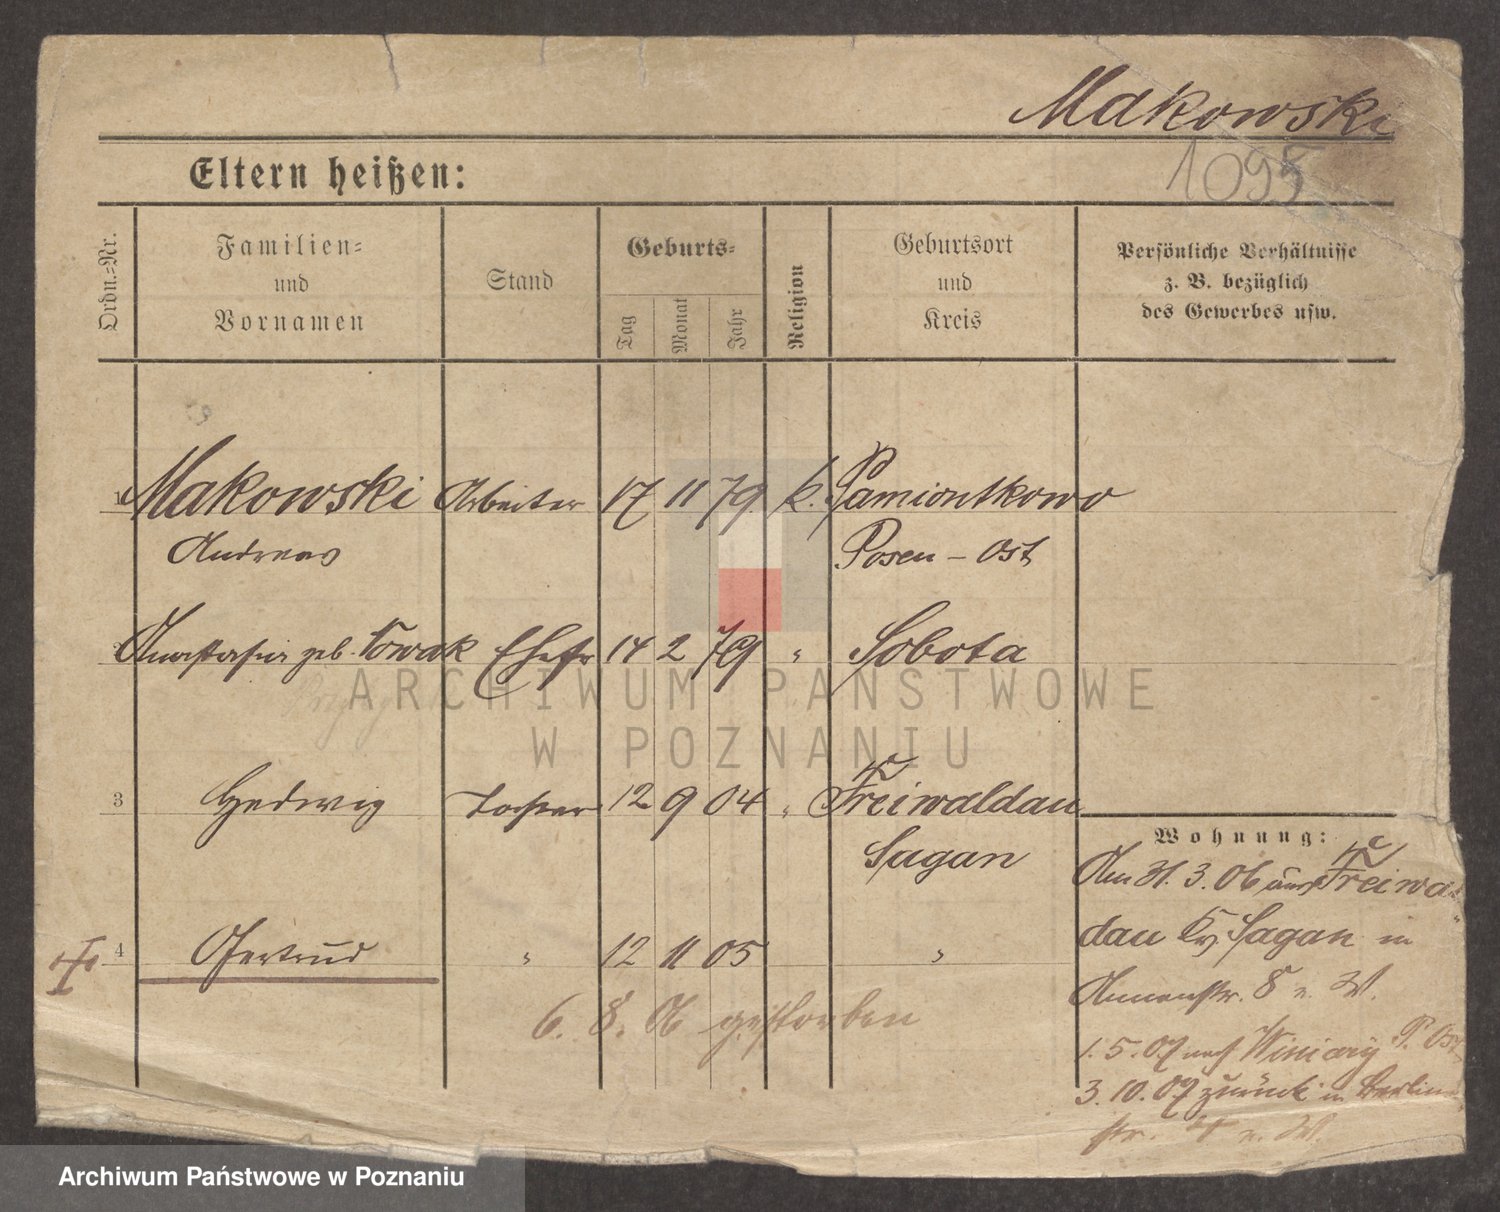 Makowski
1095
Eltern heißen:
Ordn.-Nr.
Familien- und Vornamen
Stand
Geburts-
Tag
Monat
Jahr
Religion
Geburtsort und Kreis
Persönliche Verhältnisse z. B. bezüglich des Gewerbes usw.
1 Makowski Arbeiter 17 11 79 k. Pamiontkowo
Andreas Posen - Ost
Anastasia geb. Nowak Ehefr 14 2 79 " Sobota
3 Hedwig Tochter 12 9 04 " Freiwaldau
Sagan
4 Gertrud " 12 11 05 "
6. 8. 06 gestorben
Wohnung:
Am 31. 3. 06 aus Freiwal-
dau Kr Sagan in
Annenstr. 8 n. W.
1. 5. 07 nach Winiary P. Ost
3. 10. 07 zurück in Berliner
str. n. W.
ARCHIWUM PAŃSTWOWE
W POZNANIU
Archiwum Państwowe w Poznaniu